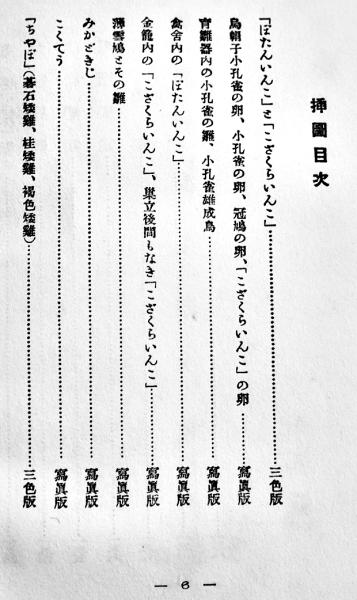 挿圖目次
「ぼたんいんこ」と「こざくらいんこ」…………三色版
烏帽子小孔雀の卵、小孔雀の卵、冠鳩の卵、「こざくらいんこ」の卵…………寫眞版
育雛器内の小孔雀の雛、小孔雀雄成鳥…………寫眞版
禽舍内の「ぼたんいんこ」…………寫眞版
金籠内の「こざくらいんこ」、巢立後間もなき「こざくらいんこ」…………寫眞版
薄雪鳩とその雛…………寫眞版
みかどきじ…………寫眞版
こくてう…………寫眞版
「ちやぼ」(碁石矮雞、桂矮雞、褐色矮雞)…………三色版
— 6 —